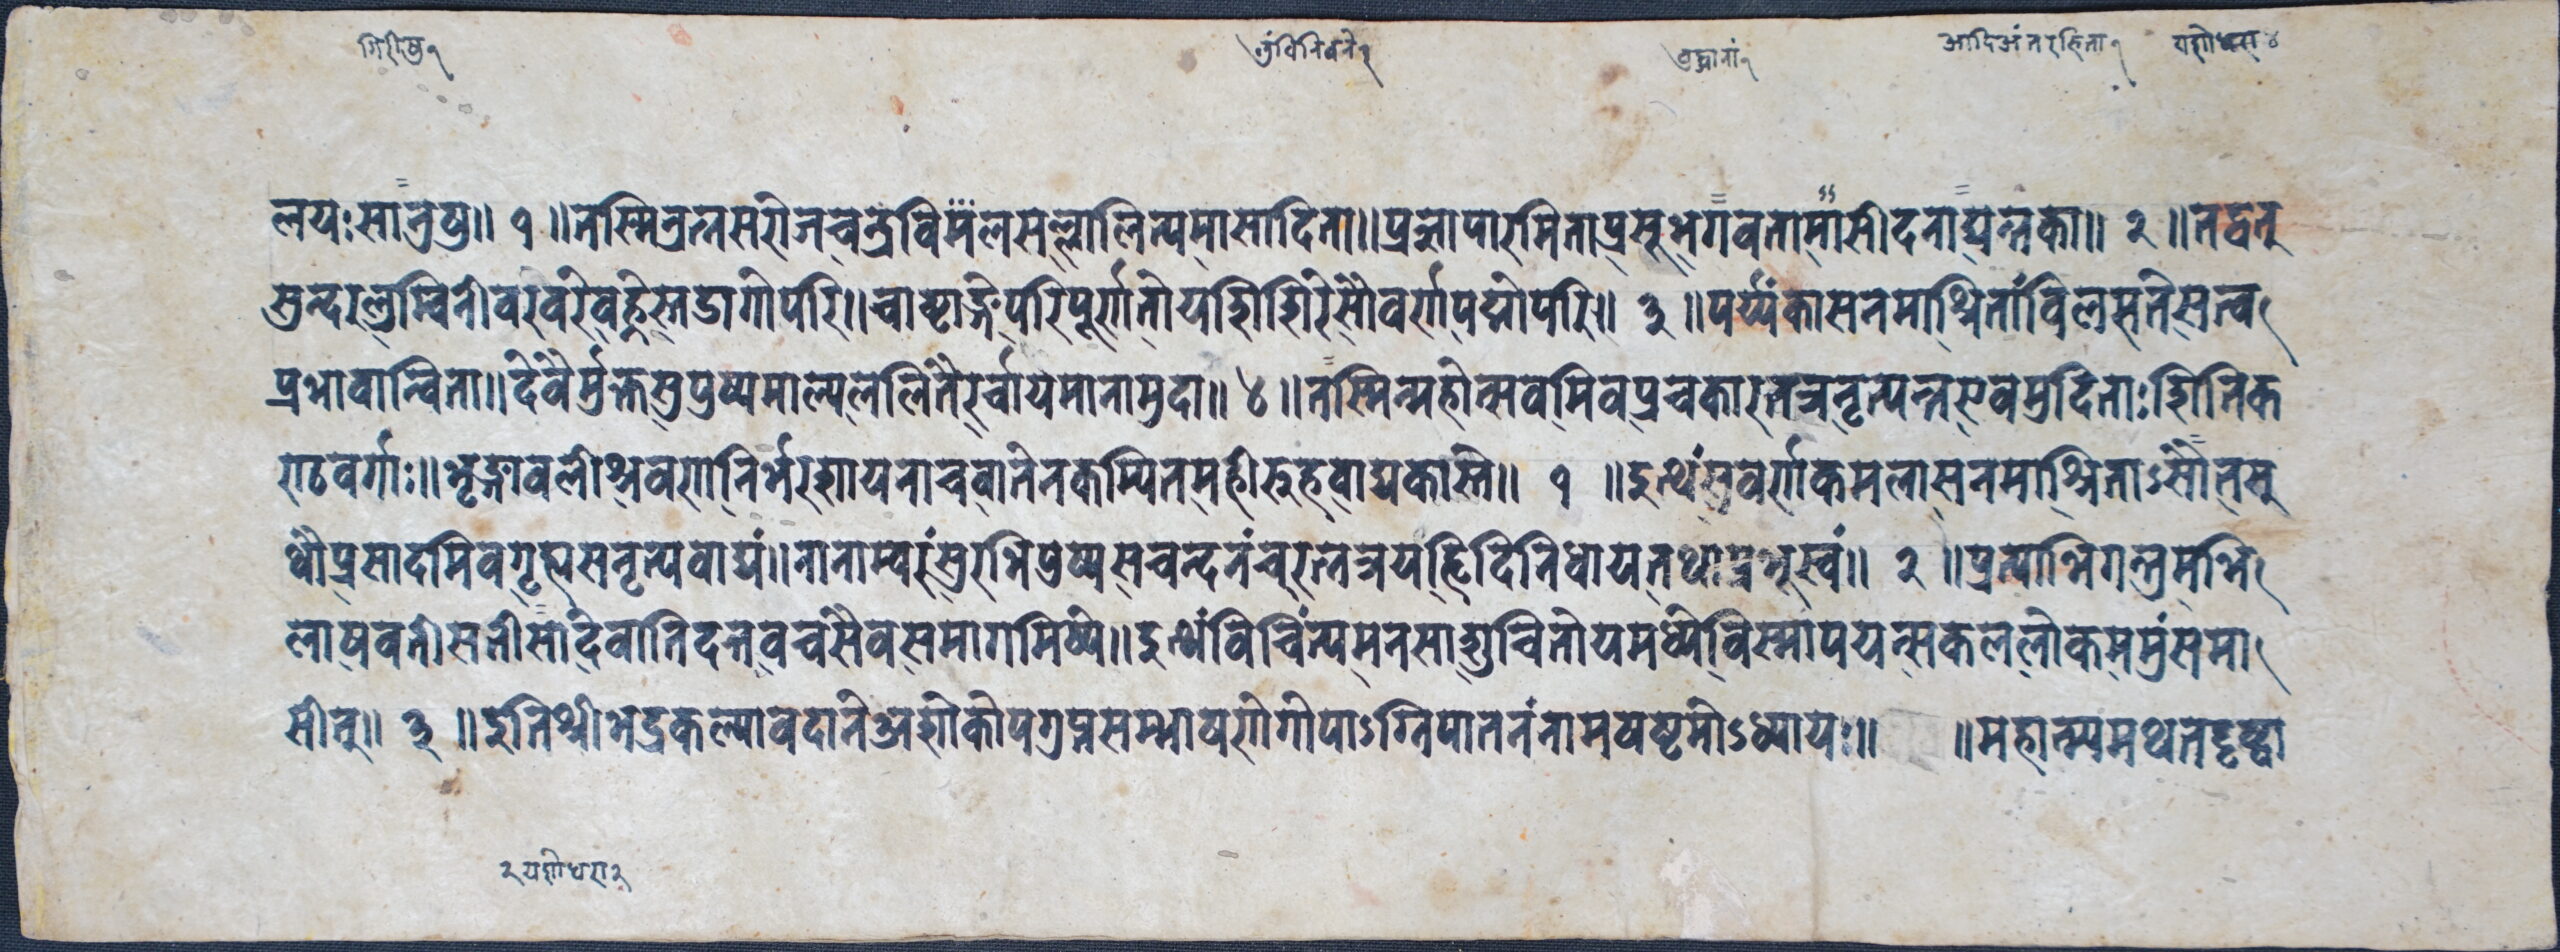 गिरीषु१ लुंविनिवने१ बुद्धानां१ आदिअंतरहिता१ यशोधरा४
लयःसानुषु॥ १ ॥तस्मिन्रत्नसरोजचन्द्रविमलसल्लालित्यमासादिता॥प्रज्ञापारमिताप्रसूभगवतामासीदनाद्यन्तका॥ २ ॥तद्वत्
सुन्दरलुम्बिनीवरवरेवह्नेस्तडागोपरि॥चाष्टाङ्गेपरिपूर्णतोयशिशिरेसौवर्णपद्मोपरि॥ ३ ॥पर्य्यंकासनमाश्रितांविलसतेसत्व
प्रभावान्विता॥देवैर्मुक्तसुपुष्पमाल्यललितैरर्चायमानामुदा॥ ४ ॥तस्मिन्महोत्सवमिवप्रचकारतत्रनृत्यन्तएवमुदिताःशितिक
राठवर्गाः॥भृङ्गावलीश्रवरानिर्भरगायनाचवातेनकम्पितमहीरुहवाद्यकास्ते॥ १ ॥इत्थंसुवर्णकमलासनमाश्रिताऽसौतत्सु
थौप्रसादमिवगृह्यसनृत्यवाद्यं॥नानाम्बरंसुरभिपुष्पसचन्दनंचरत्नत्रयंहृदिनिधायतथाप्रभूस्वं॥ २ ॥प्रत्याभिगन्तुमभि
लाषवतीसतीसादेवातिदत्तवचसैवसमागमिष्ये॥इत्थंविचिंत्यमनसाशुचितोयमध्येविस्मापयन्सकललोकममुंसमा
सीत्॥ ३ ॥इतिश्रीभद्रकल्पावदानेअशोकोपगुप्तसम्भाषणेगोपाऽग्निपातननंनामषष्टमोऽध्यायः॥ ॥महात्म्यमथतदृष्ट्वा
२यशोधरा२